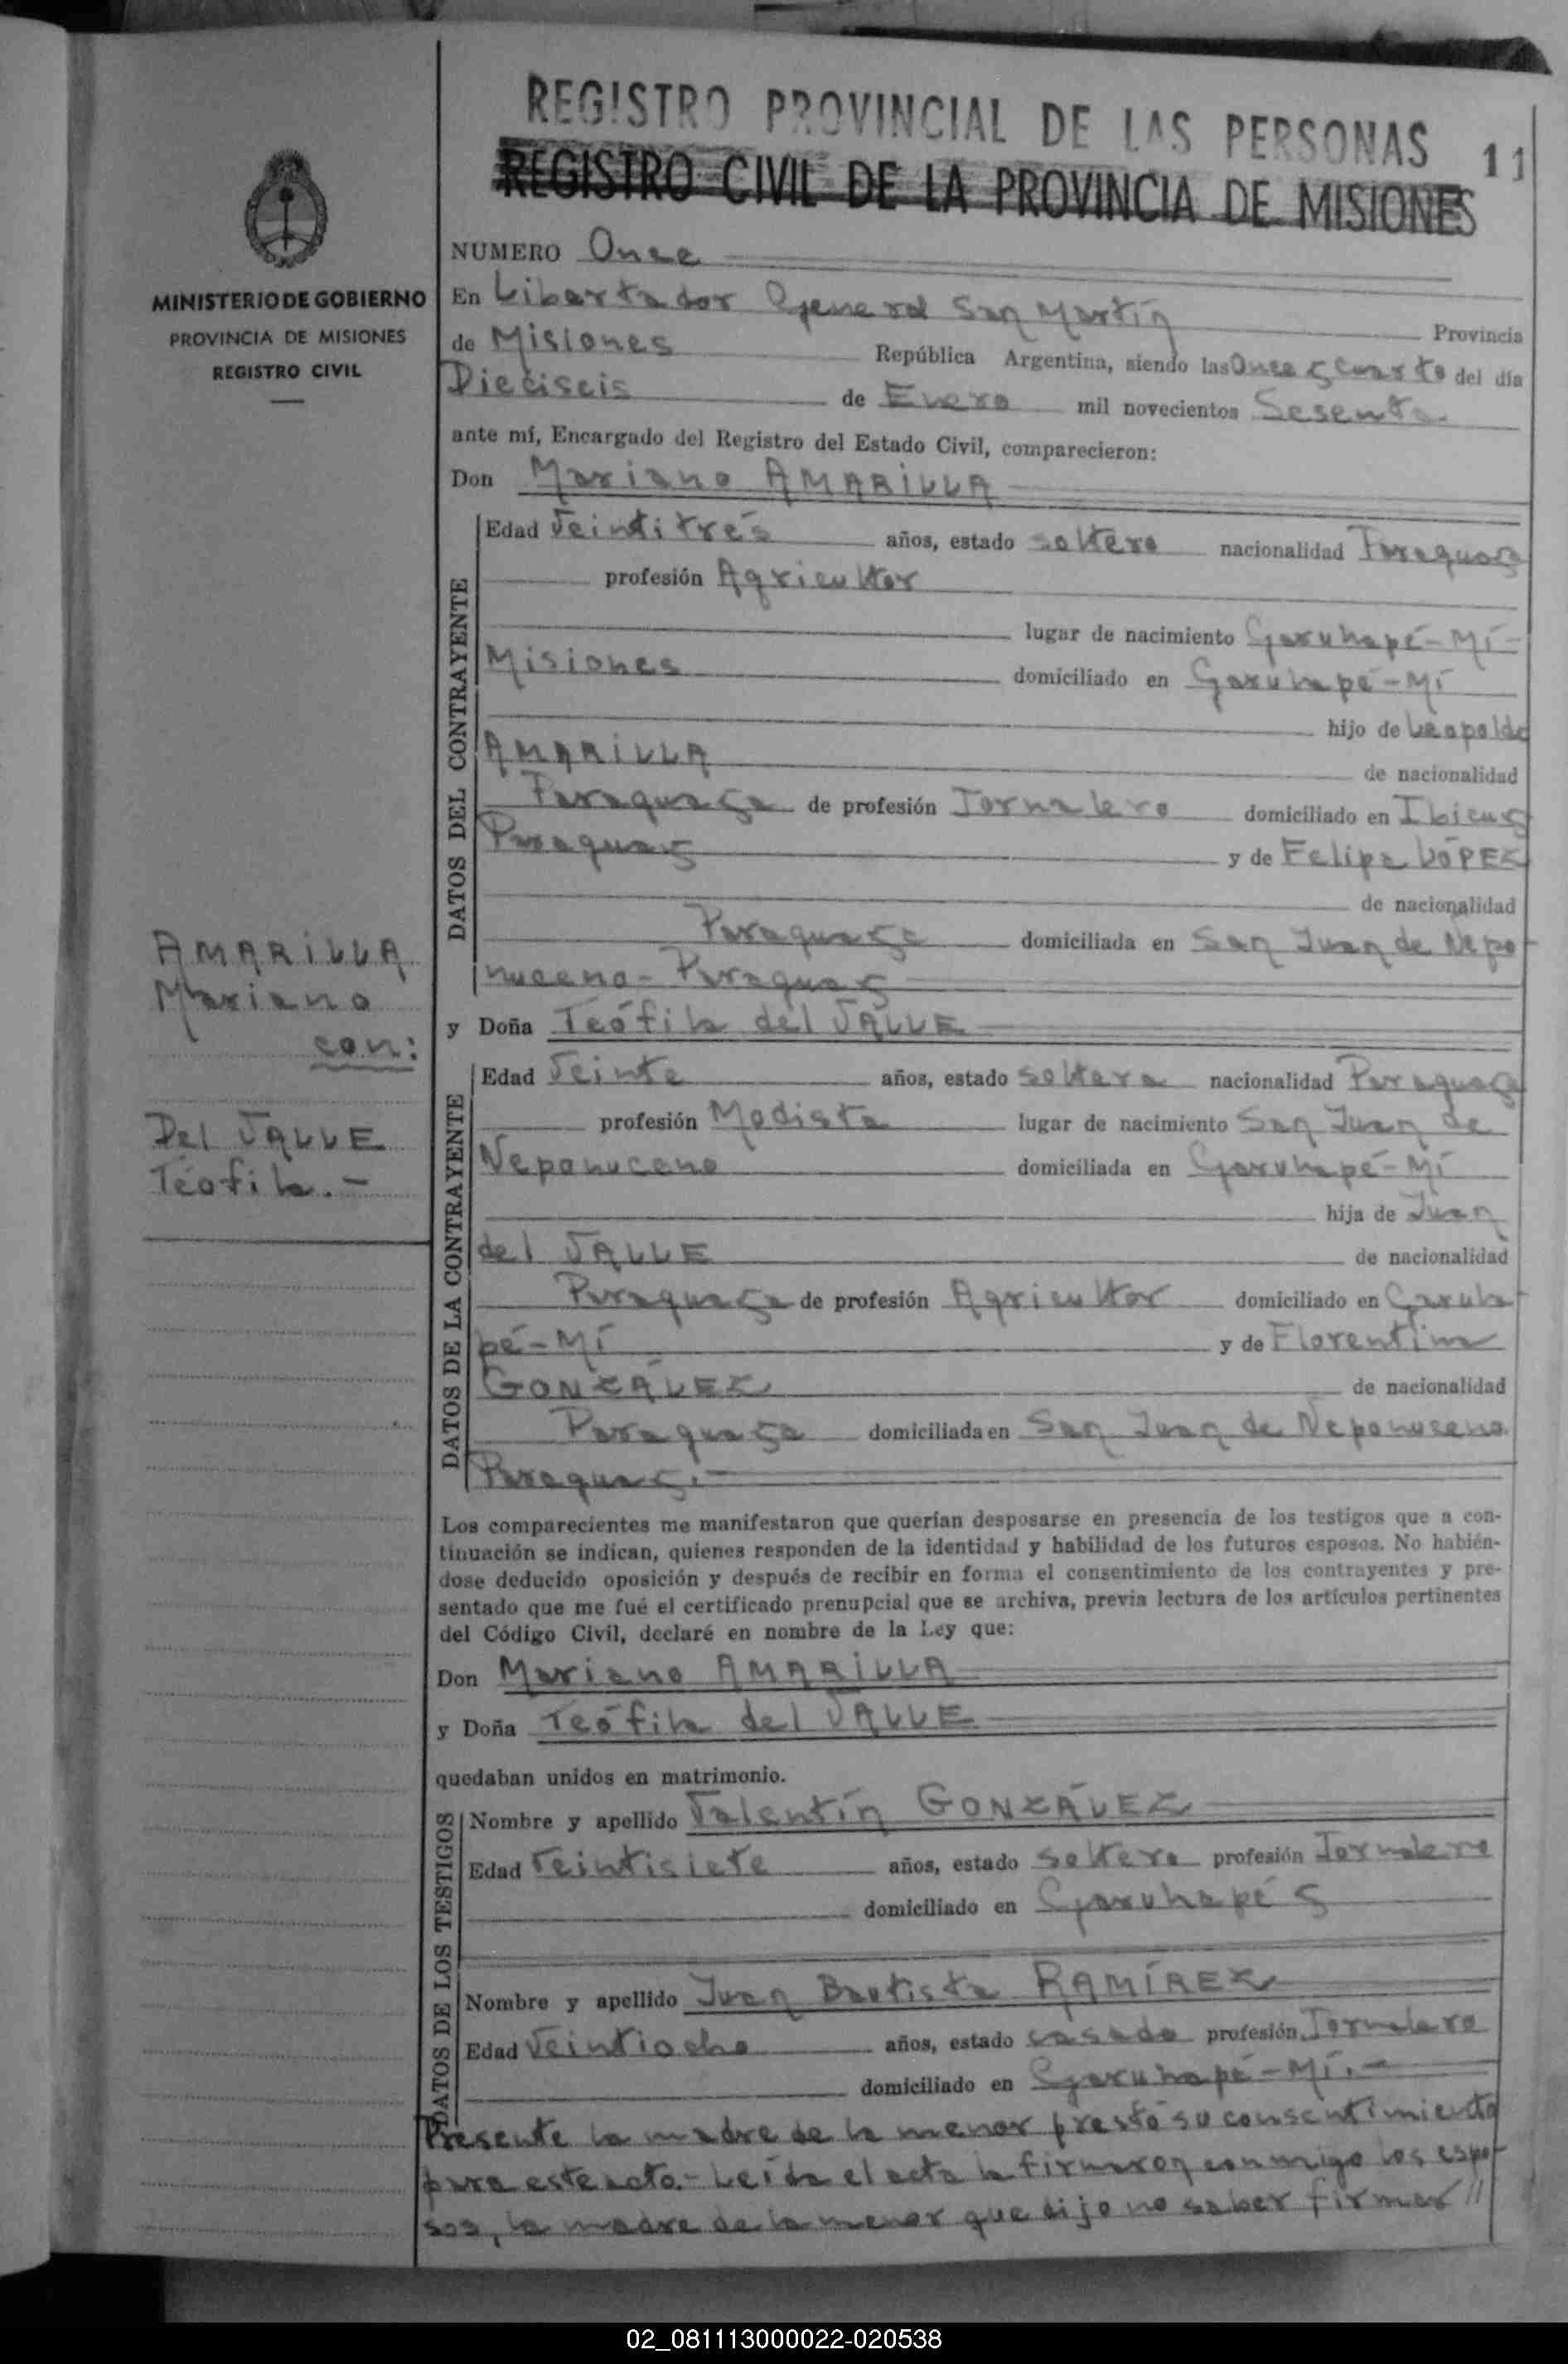 REGISTRO PROVINCIAL DE LAS PERSONAS 11
REGISTRO CIVIL DE LA PROVINCIA DE MISIONES
MINISTERIO DE GOBIERNO
PROVINCIA DE MISIONES
REGISTRO CIVIL
AMARILLA
Mariano
con:
Del VALLE
Teófila.-
NUMERO Once
En Libertador General San Martín Provincia
de Misiones República Argentina, siendo las Once y cuarto del día
Dieciseis de Enero mil novecientos Sesenta.
ante mí, Encargado del Registro del Estado Civil, comparecieron:
Don Mariano AMARILLA
DATOS DEL CONTRAYENTE
Edad Veintitrés años, estado soltero nacionalidad Paraguaya
profesión Agricultor
lugar de nacimiento Garuhapé-Mí-
Misiones domiciliado en Garuhapé-Mí
hijo de Leopoldo
AMARILLA de nacionalidad
Paraguaya de profesión Jornalero domiciliado en Ibicuy
Paraguay y de Felipa LÓPEZ
de nacionalidad
Paraguaya domiciliada en San Juan de Nepo-
nuceno- Paraguay
y Doña Teófila del VALLE
DATOS DE LA CONTRAYENTE
Edad Veinte años, estado soltera nacionalidad Paraguaya
profesión Modista lugar de nacimiento San Juan de
Neponuceno domiciliada en Garuhapé-Mí
hija de Juan
del VALLE de nacionalidad
Paraguaya de profesión Agricultor domiciliado en Garuha-
pé-Mí y de Florentina
GONZÁLEZ de nacionalidad
Paraguaya domiciliada en San Juan de Neponuceno
Paraguay.-
Los comparecientes me manifestaron que querían desposarse en presencia de los testigos que a con-
tinuación se indican, quienes responden de la identidad y habilidad de los futuros esposos. No habién-
dose deducido oposición y después de recibir en forma el consentimiento de los contrayentes y pre-
sentado que me fué el certificado prenupcial que se archiva, previa lectura de los artículos pertinentes
del Código Civil, declaré en nombre de la Ley que:
Don Mariano AMARILLA
y Doña Teófila del VALLE
quedaban unidos en matrimonio.
DATOS DE LOS TESTIGOS
Nombre y apellido Valentín GONZÁLEZ
Edad Veintisiete años, estado soltero profesión Jornalero
domiciliado en Garuhapé y
Nombre y apellido Juan Bautista RAMÍREZ
Edad Veintiocho años, estado casado profesión Jornalero
domiciliado en Garuhapé-Mí.-
Presente la madre de la menor prestó su consentimiento
para este acto.- Leída el acta la firmaron conmigo los espo-
sos, la madre de la menor que dijo no saber firmar //
02_081113000022-020538